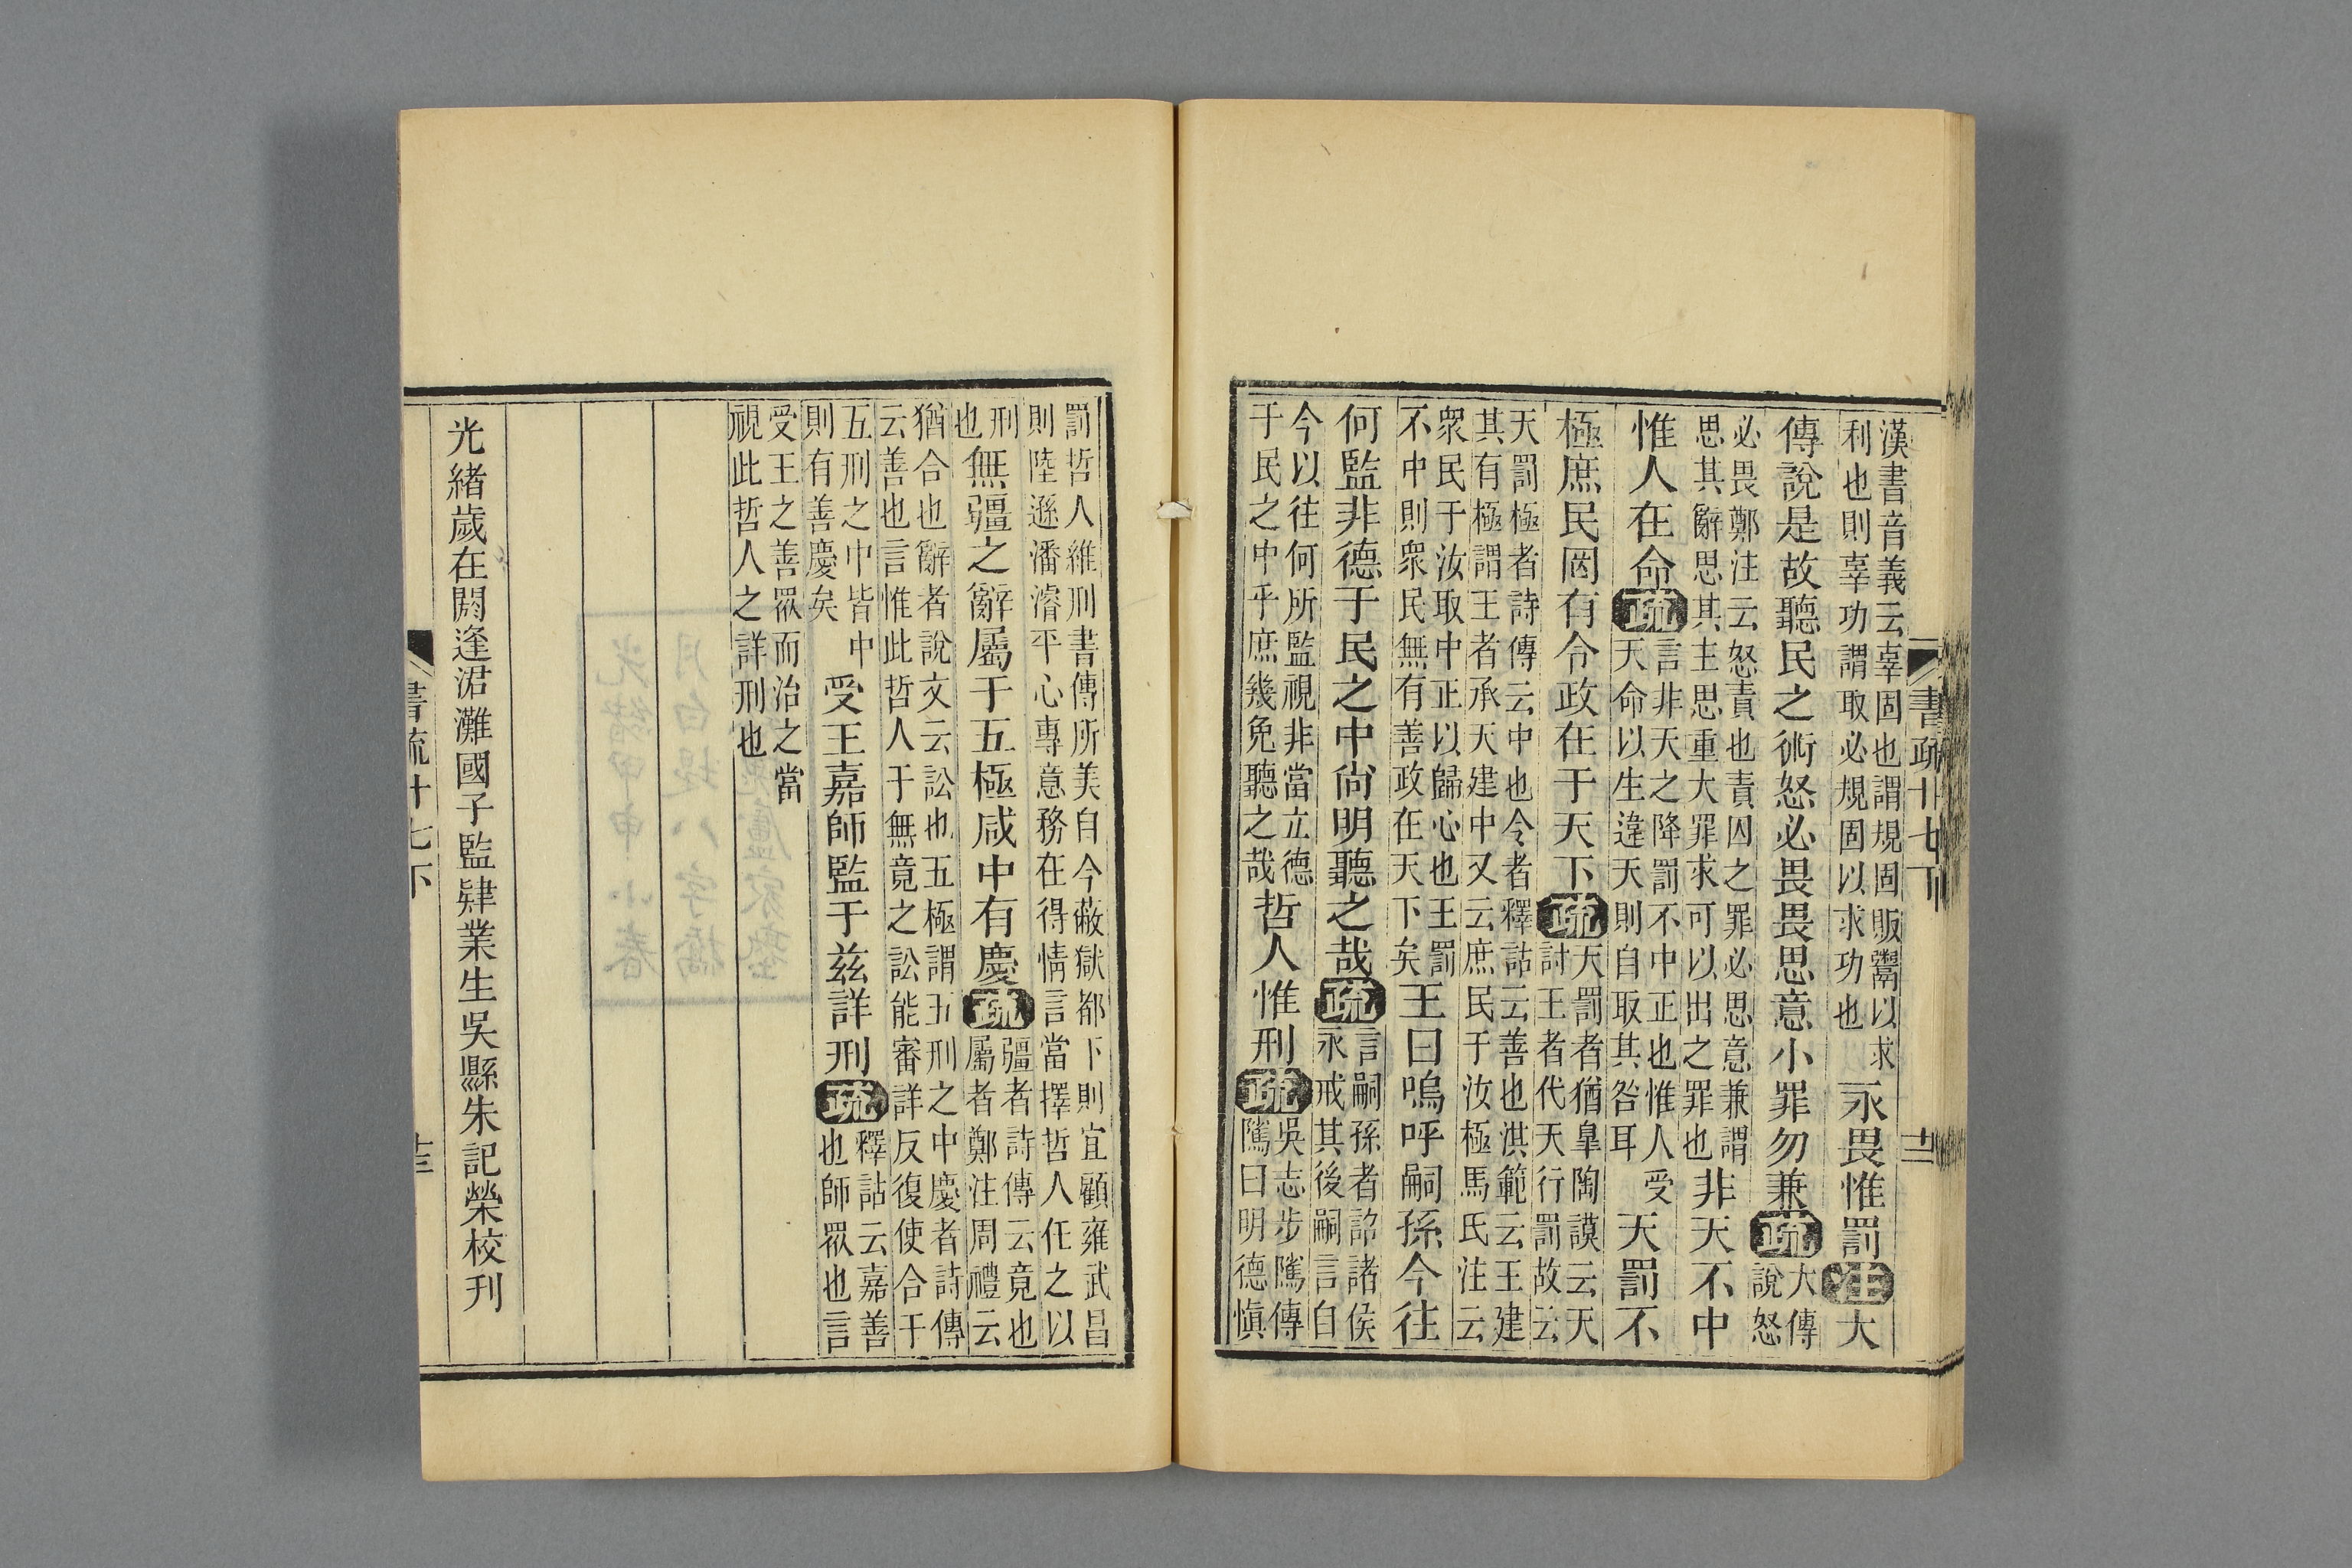 漢書音義云辜固也謂規固販鬻以求
利也則辜功謂取必規固以求功也
永畏惟罰注大
傳說是故聽民之術怒必畏畏思意小罪勿兼疏
大傳
說怒
必畏鄭注云怒責也責囚之罪必思意兼謂
思其辭思其主思重大罪求可以出之罪也
非天不中
惟人在命疏
言非天之降罰不中正也惟人受
天命以生違天則自取其咎耳
天罰不
極庶民罔有令政在于天下疏
天罰者猶皐陶謨云天
討王者代天行罰故云
天罰極者詩傳云中也令者釋詁云善也洪範云王建
其有極謂王者承天建中又云庶民于汝極馬氏注云
衆民于汝取中正以歸心也王罰
不中則衆民無有善政在天下矣
王曰嗚呼嗣孫今往
何監非德于民之中尚明聽之哉疏
言嗣孫者詔諸侯
永戒其後嗣言自
今以往何所監視非當立德
于民之中乎庶幾免聽之哉
哲人惟刑疏
吳志步隲傳
隲曰明德愼
罰哲人維刑書傳所美自今蔽獄都下則宜顧雍武昌
則陸遜潘濬平心專意務在得情言當擇哲人任之以
刑
也
無疆之辭屬于五極咸中有慶疏
疆者詩傳云竟也
屬者鄭注周禮云
猶合也辭者說文云訟也五極謂五刑之中慶者詩傳
云善也言惟此哲人于無竟之訟能審詳反復使合于
五刑之中皆中
則有善慶矣
受王嘉師監于兹詳刑疏
釋詁云嘉善
也師眾也言
受王之善眾而治之當
視此哲人之詳刑也
光緒歲在閼逢涒灘國子監肄業生吳縣朱記榮校刊
書疏十七下
十二
書疏十七下
十三